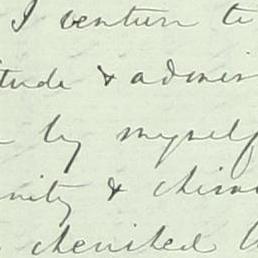 I venture to
tude & admir
by myself
nity & chiva
cherished